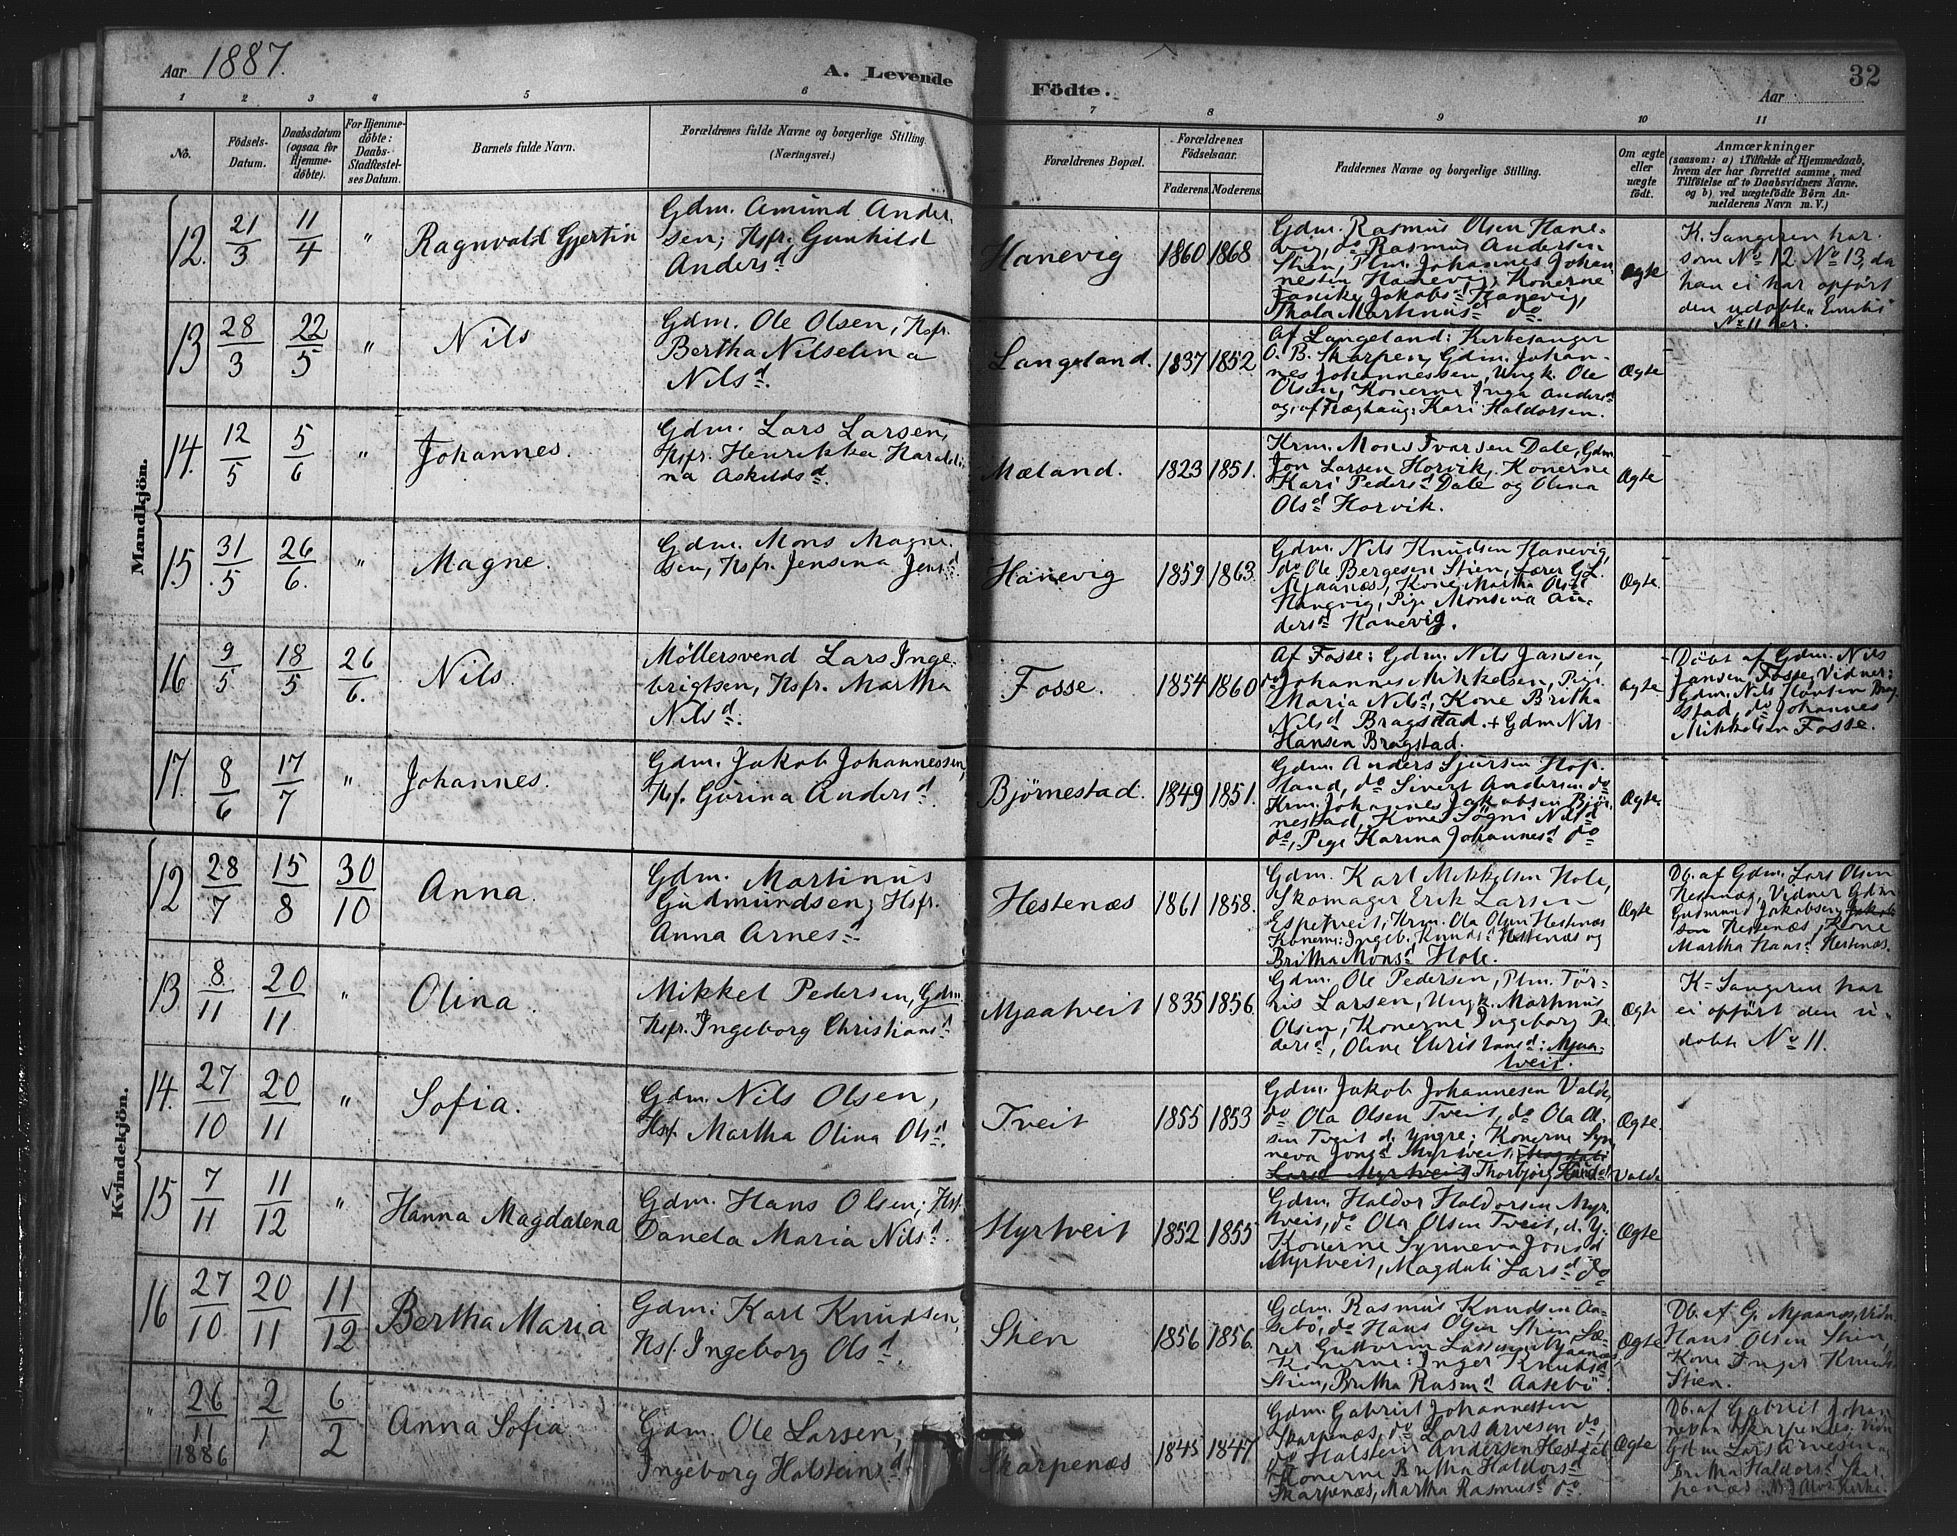 Aar 1887.
A. Levende Födte.
Aar
32
1 2 3 4 5 6 7 8 9 10 11
No.
Födsels-
Datum.
Daabsdatum
(ogsaa for
Hjemme-
döbte).
For Hjemme-
döbte:
Daabs-
Stadfæstel-
ses Datum.
Barnets fulde Navn.
Forældrenes fulde Navne og borgerlige Stilling.
(Næringsvei.)
Forældrenes Bopæl.
Forældrenes
Födselsaar.
Faderens. Moderens.
Faddernes Navne og borgerlig Stilling.
Om ægte
eller
uægte
födt.
Anmærkninger
(saasom: a) i Tilfælde af Hjemmedaab,
hvem der har forrettet samme, med
Tilföielse af to Daabsvidners Navne.
og b) ved uægtefödte Börn An-
melderens Navn m. V.)
Mandkjön.
12. 21/3 11/4 " Ragnvald Gjertin
Gdm. Amund Ander-
sen; Hsfr. Gunhild
Andersd
Hanevig 1860 1868
Gdm. Rasmus Olsen Hane-
vig, do Rasmus Andersen
Stien, Plm. Johannes Johan-
nessen Hanevig, Konerne
Jakobsd Hanevig,
Thala Martinusd do.
Ægte
K. Sangeren har
som No 12 No 13, da
han ei har opført
den udøbte
No 11 her.
13 28/3 22/5 " Nils
Gdm. Ole Olsen, Hsfr.
Bertha Nilselina
Nilsd.
Langeland. 1837 1852.
Af Langeland: Kirkesanger
O. B. Skarpen, Gdm. Johan-
nes Johannessen, Ungk. Ole
Olsen, Konerne Inga Andersd
og, af Træghaug: Kari Haldorsen.
Ægte
14. 12/5 5/6 " Johannes.
Gdm. Lars Larsen,
Hsfr. Henrikka Haraldi-
na Askildsd.
Mæland. 1823 1851.
Krm. Mons Ivarsen Dale, Gdm
Jon Larsen Horvik, Konerne
Kari Pedersd Dale og Olina
Olsd Horvik.
Ægte
15. 31/5 26/6. " Magne.
Gdm. Mons Magne-
sen, Hsfr. Jensina Jensd
Hanevig 1859 1863.
Gdm. Nils Knudsen Hanevig,
do Ole Bergesen Stien, Lærer G. L.
Mjaanæs, Kone Martha Olsd
Hanevig, Pige Monsina An-
dersd Hanevig.
Ægte.
16 9/5 18/5 26/6. Nils.
Møllersvend Lars Inge-
brigtsen, Hsfr. Martha
Nilsd.
Fosse. 1854 1860
Af Fosse: Gdm. Nils Jansen,
do Johannes Mikkelsen, Pige
Maria Nilsd, Kone Britha
Nilsd Bragstad. + Gdm Nils
Hansen Bragstad.
Ægte
Døbt af Gdm. Nils
Jansen Fosse, Vidner:
Gdm. Nils Hansen Brag-
stad, do Johannes
Mikkelsen Fosse.
17. 8/6 17/7 " Johannes.
Gdm. Jakob Johannessen,
Hsf. Gurina Andersd.
Bjørnestad. 1849 1851.
Gdm. Anders Sjursen Hop-
land, do Sivert Andersen do
Krm. Johannes Jakobsen Bjør-
nestad, Kone Søgni Nilsd
do, Pige Karina Johannesd do
Ægte.
Kvindekjön.
12 28/7 15/8 30/10 Anna.
Gdm. Martinus
Gudmundsen, Hsfr.
Anna Arnesd
Hestenæs 1861 1858.
Gdm. Karl Mikkelsen Hole,
Skomager Erik Larsen
Espetveit, Krm. Ola Olsen Hestenæs
Konerne: Ingeb. Knudsd Hestenæs og
Britha Monsd Hole.
Ægte
Db. af Gdm. Lars Olsen
Hestenæs, Vidner Gdm
Gudmund Jakobsen
Hestenæs, Kone
Martha Hansd Hestenæs.
13 8/11 20/11 " Olina.
Mikkel Pedersen, Gdm.
Hsfr. Ingeborg Christiansd
Mjaatveit 1835 1856.
Gdm. Ole Pedersen, Plm. Tør-
ris Larsen, Ungk. Martinus
Olsen, Konerne Ingeborg Pe-
dersd, Oline Christiansd: Mjaa-
tveit.
Ægte
K-Sangeren har
ei opført den u-
døbte No 11.
14. 27/10 20/11 " Sofia.
Gdm. Nils Olsen,
Hsf. Martha Olina Olsd.
Tveit 1855 1853
Gdm. Jakob Johannesen Valde,
do Ola Olsen Tveit, do Ola Ol-
sen Tveit d. Yngre; Konerne Syn-
neva Jonsd Myrtveit, Magdali
Larsd Myrtveit, Thorbjørg Knudsd Valde
Ægte.
15 7/11 11/12 " Hanna Magdalena
Gdm. Hans Olsen; Hsf.
Danela Maria Nilsd.
Myrtveit 1852 1855
Gdm. Haldor Haldorsen Myr-
tveit, do Ola Olsen Tveit, d. Y.
Konerne Synneva Jonsd
Myrtveit, Magdali Larsd do
Ægte
16 27/10. 20/11 11/12 Bertha Maria
Gdm: Karl Knudsen,
Hsf. Ingeborg Olsd
Stien 1856 1856.
Gdm. Rasmus Knudsen Aa-
sebö, do Hans Olsen Stien, Læ-
rer Guttorm Larssen Mjaanæs,
Konerne: Inger Knudsd
Stien, Britha Rasmd Aasebö.
Ægte
Db. af G. Mjaanæs, Vidn
Hans Olsen Stien,
Kone Inger Knuds
Stien.
" 26/11 1886 2/1 6/2 Anna Sofia
Gdm. Ole Larsen,
Ingeborg Halsteinsd.
Skarpenæs 1845 1847
Gdm. Gabriel Johannessen
Skarpenæs, do Lars Arvesen do,
do Halstein Andersen Hestdal
Konerne Britha Haldorsd
Skarpenæs, Martha Rasmusd do.
Ægte
Db. af Gabriel Johan-
nesen Skarpenæs. Vidn
Gdm Lars Arvesen,
Britha Haldorsd Skar-
penæs. Kirke.